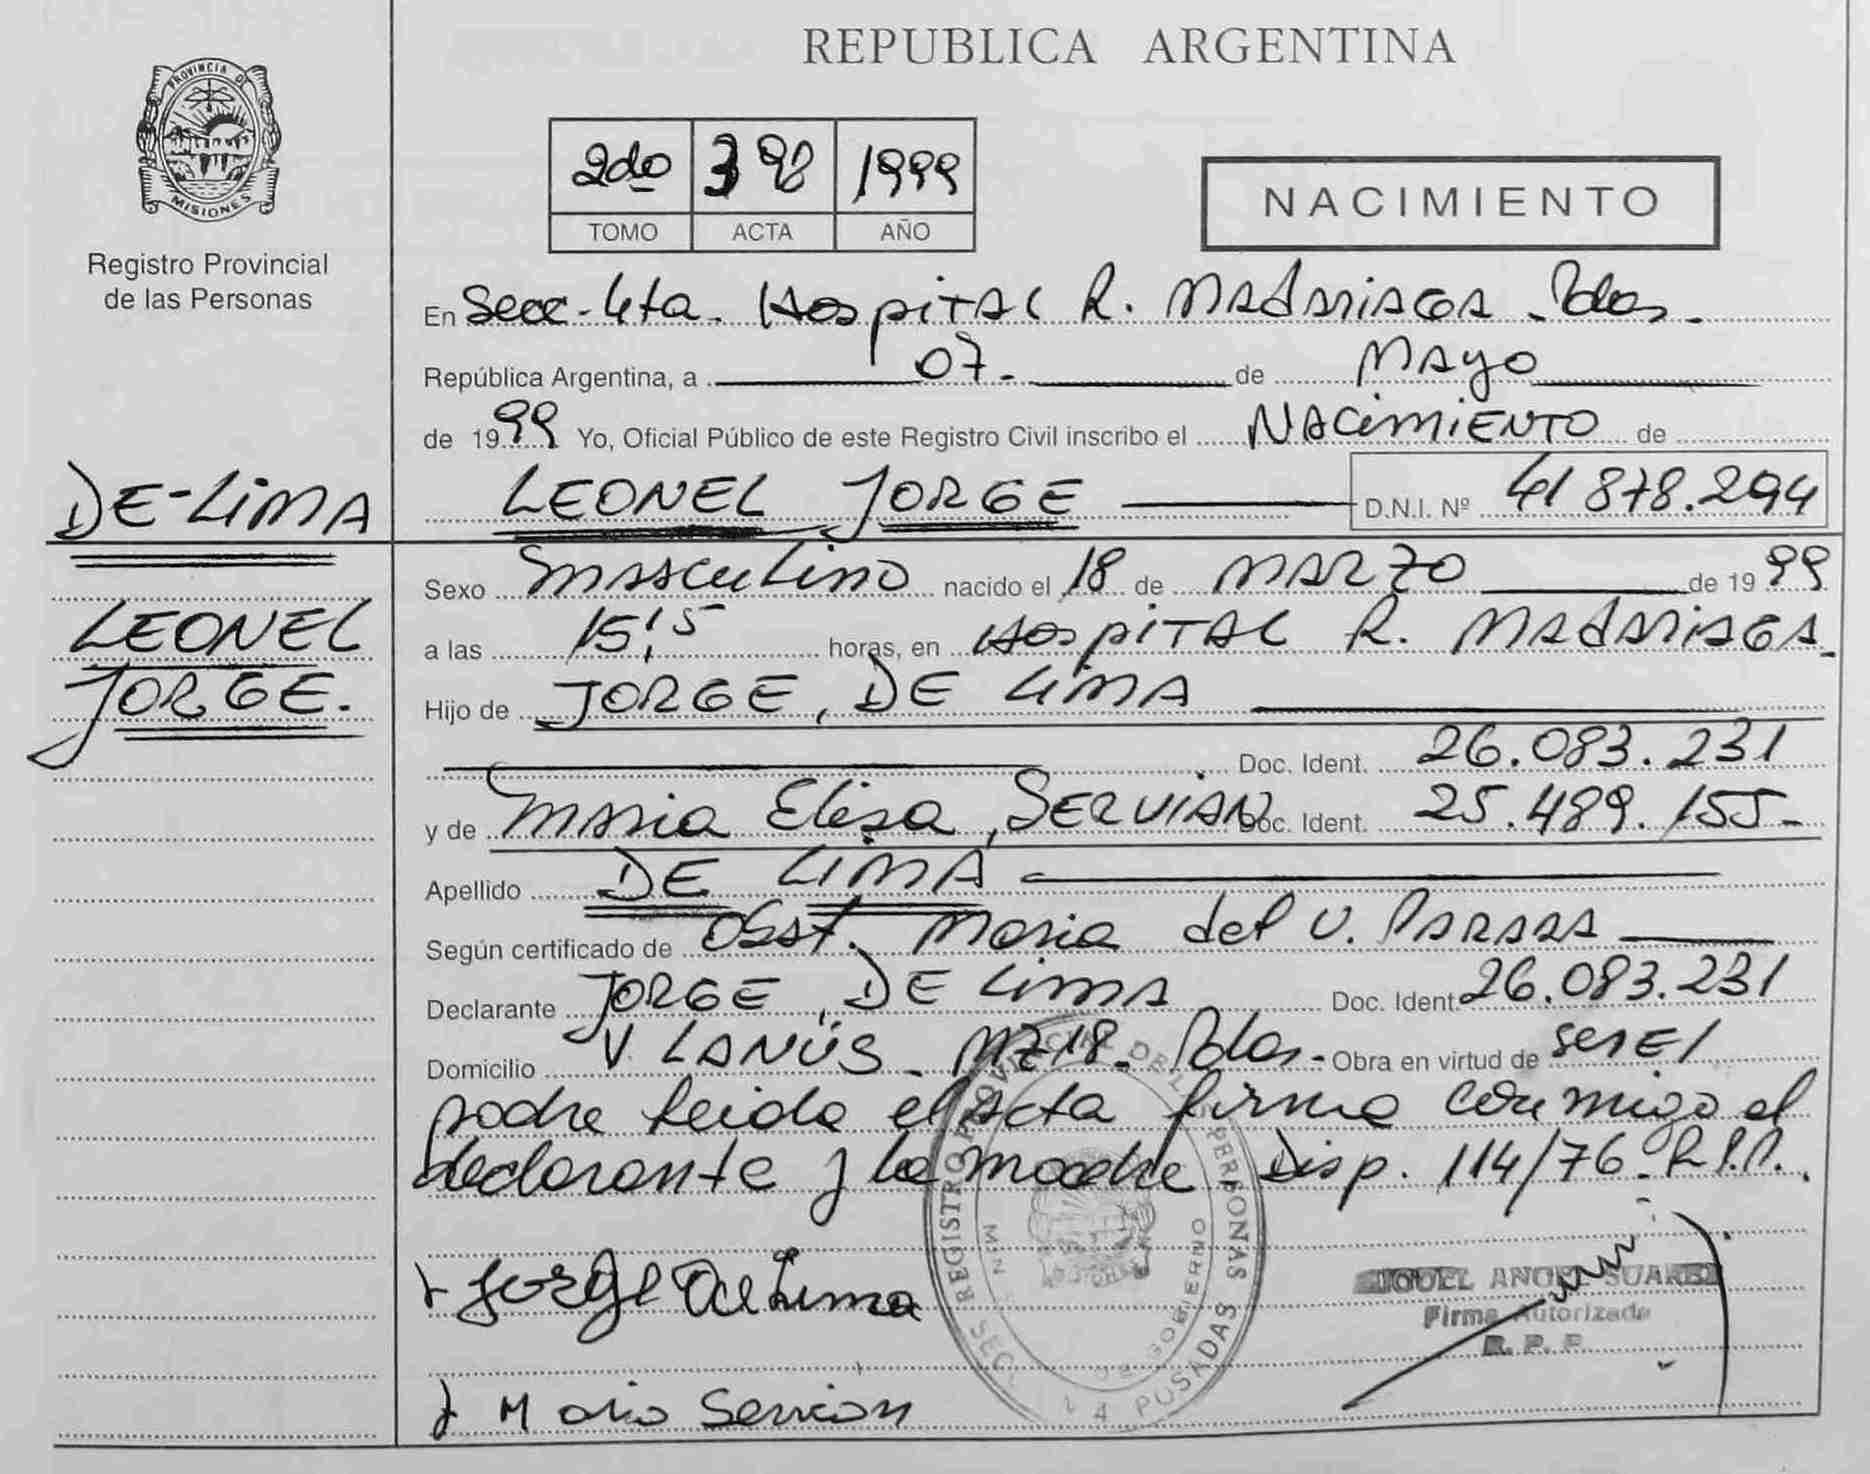 REPUBLICA ARGENTINA
PROVINCIA DE
MISIONES
Registro Provincial
de las Personas
2do 398 1999
TOMO ACTA AÑO
NACIMIENTO
En Secc-4ta. Hospital R. MADARIAGA - Pdas.
República Argentina, a 07- de MAyo
de 1999 Yo, Oficial Público de este Registro Civil inscribo el NACimiENTO de
DE-LimA
LEONEL JORGE D.N.I. Nº 41 878.294
LEONEL
JORGE.
Sexo Masculino nacido el 18 de MARZO de 1999
a las 15,15 horas, en Hospital R. MADARIAGA.
Hijo de JORGE, DE LimA
Doc. Ident. 26.083.231
y de Maria Elisa, SERVIAN Doc. Ident. 25.489.155-
Apellido DE LIMA
Según certificado de Obst. Maria del V.
Declarante JORGE, DE LimA Doc. Ident. 26.083.231
Domicilio V. LANÚS - MZ 18- Pdas.- Obra en virtud de ser El
padre leida el Acta firma conmigo el
declarante y la madre. Disp. 114/76- R.P.P.
Jorge De Lima
Maria Servian
REGISTRO PROVINCIAL DE LAS PERSONAS
SECC. 4 POSADAS
MIN. DE GOBIERNO
MIGUEL ANGEL SUAREZ
Firma Autorizada
R. P. P.